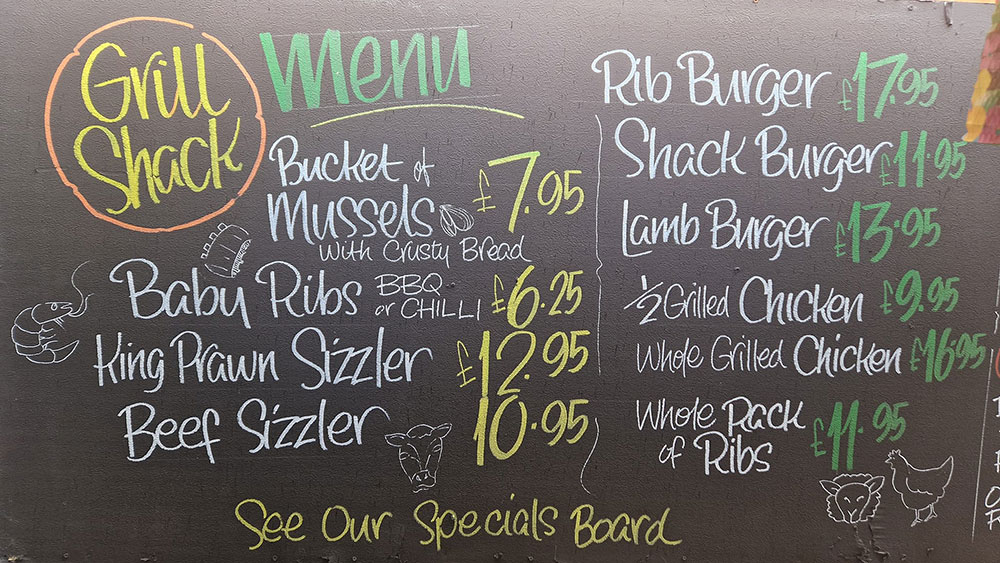 Grill
Shack
Menu
Bucket of
Mussels £7.95
With Crusty Bread
Baby Ribs BBQ or CHILLI £6.25
King Prawn Sizzler £12.95
Beef Sizzler 10.95
Rib Burger £17.95
Shack Burger £11.95
Lamb Burger £13.95
½ Grilled Chicken £9.95
Whole Grilled Chicken £16.95
Whole Rack
of Ribs £11.95
See Our Specials Board